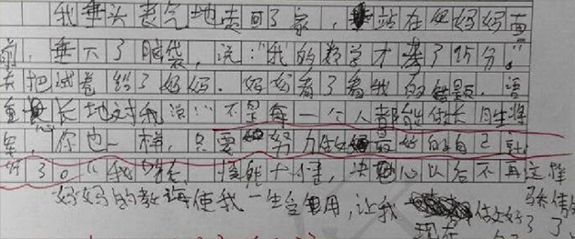 我垂头丧气地走回了家，站在妈妈面
前，垂下了脑袋，说："我的数学才考了95分。"
我把试卷给了妈妈。妈妈看了看我的错题，语
重心长地对我说："不是每一个人都能做长胜将
军，你也一样，只要努力做最好的自己就
行了。"我听后，惭愧十，决心以后不再这样
妈妈的教诲使我一生受用，让我做好了
现在